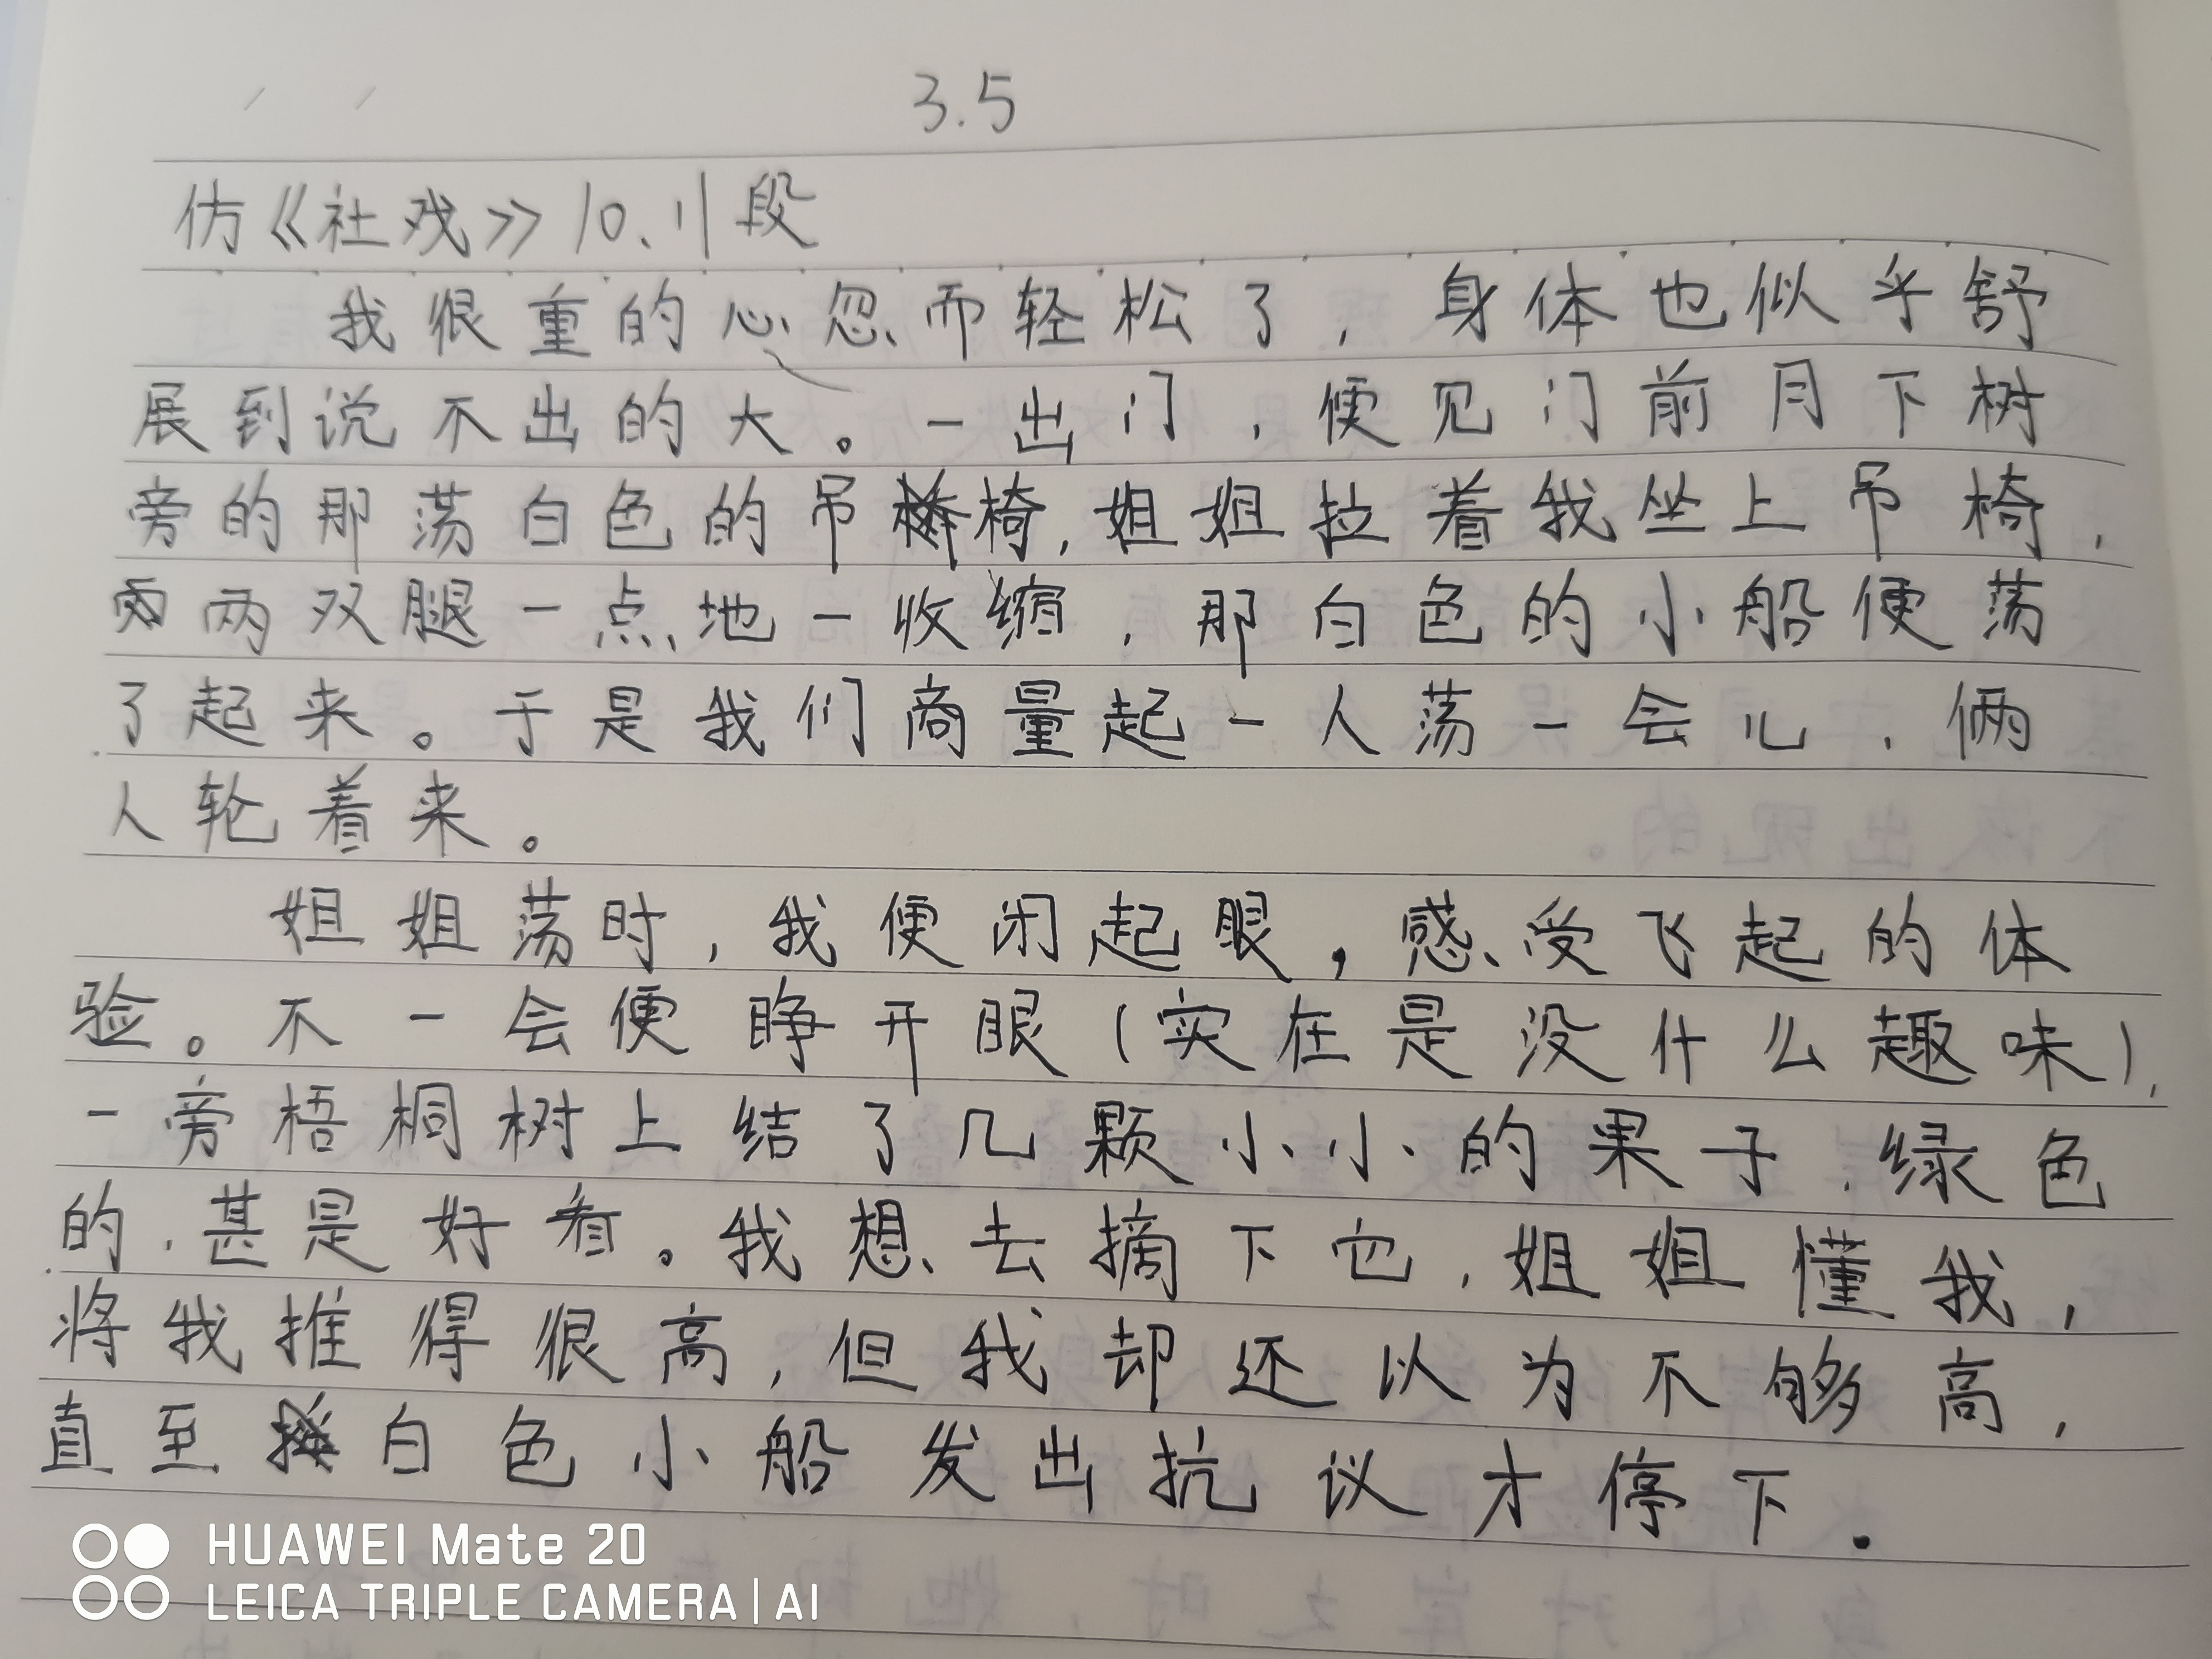 3.5
仿《社戏》10、11段
我很重的心忽而轻松了，身体也似乎舒
展到说不出的大。一出门，便见门前月下树
旁的那荡白色的吊椅，姐姐拉着我坐上吊椅，
两双腿一点地一收缩，那白色的小船便荡
了起来。于是我们商量起一人荡一会儿，俩
人轮着来。
姐姐荡时，我便闭起眼，感受飞起的体
验。不一会便睁开眼（实在是没什么趣味），
一旁梧桐树上结了几颗小小的果子，绿色
的，甚是好看。我想去摘下它，姐姐懂我，
将我推得很高，但我却还以为不够高，
直至白色小船发出抗议才停下.
HUAWEI Mate 20
LEICA TRIPLE CAMERA | AI